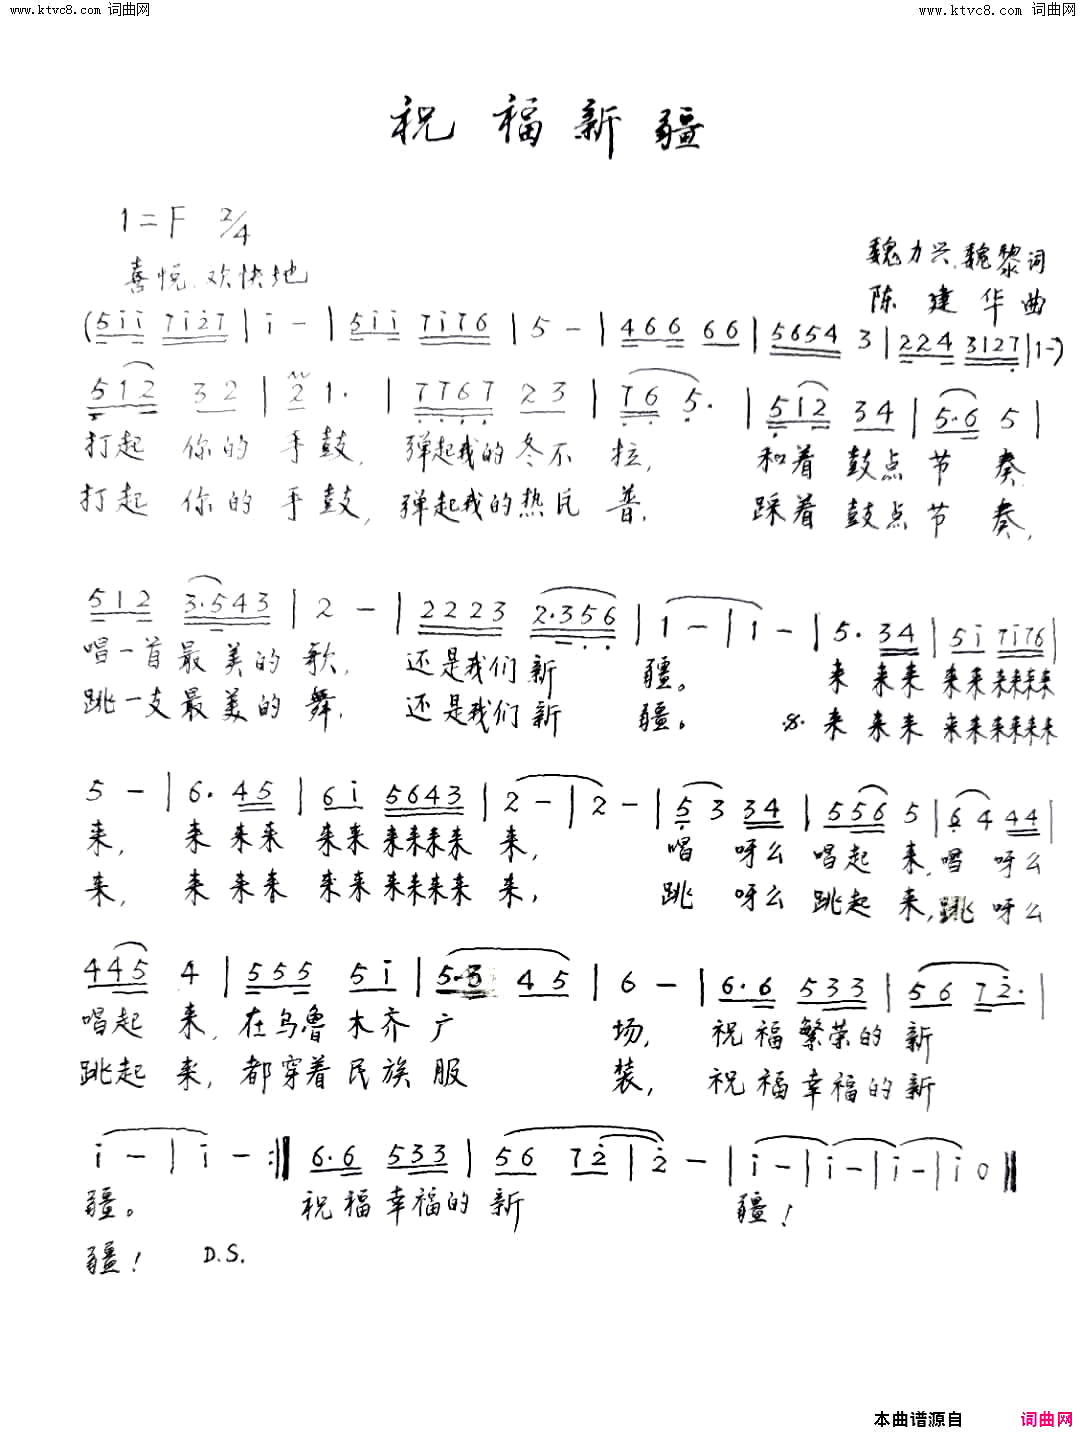 www.ktvc8.com 词曲网 www.ktvc8.com 词曲网
祝福新疆
1=F 2/4
喜悦、欢快地
魏力兴、魏黎词
陈建华曲
(5i i 7i27 | i - | 5i i 7i76 | 5 - | 466 66 | 5654 3 | 224 3127 | 1 -)
512 32 | 2 1. | 7767 23 | 76 5. | 512 34 | 5.6 5 |
打起 你的 手鼓, 弹起我的冬不 拉, 和着 鼓点 节 奏,
打起 你的 手鼓, 弹起我的热瓦 普, 踩着 鼓点 节 奏,
512 3.543 | 2 - | 2223 2.356 | 1 - | 1 - | 5. 34 | 5i 7i76 |
唱一首最美的 歌, 还是我们新 疆。 来 来来 来来来来来来
跳一支最美的 舞, 还是我们新 疆。 𝄋 来 来来 来来来来来来
5 - | 6. 45 | 6i 5643 | 2 - | 2 - | 5 3 34 | 556 5 | 6 4 44 |
来, 来 来来 来来 来来来来 来, 唱 呀么 唱起 来, 唱 呀么
来, 来 来来 来来 来来来来 来, 跳 呀么 跳起 来, 跳 呀么
445 4 | 555 5i | 5.3 45 | 6 - | 6.6 533 | 56 72. |
唱起 来, 在乌鲁 木齐 广 场, 祝福 繁荣的 新
跳起 来, 都穿着 民族 服 装, 祝福 幸福的 新
i - | i - :‖ 6.6 533 | 56 72 | 2 - | i - | i - | i - | i 0 ‖
疆。 祝福 幸福的 新 疆!
疆! D.S.
本曲谱源自 词曲网